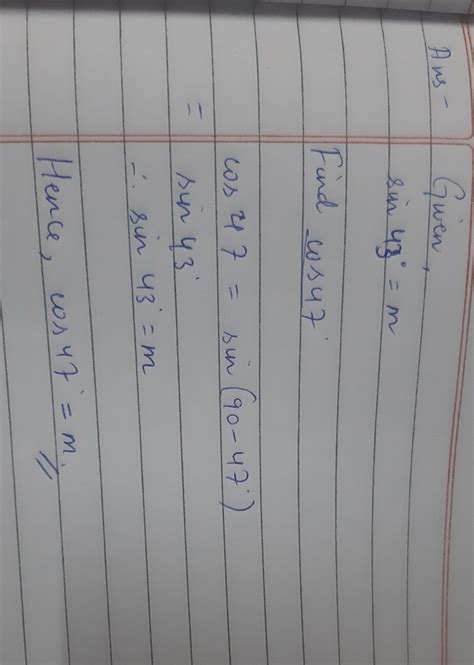 Ans - Given,
sin 43° = m
Find cos 47°
cos 47 = sin (90 - 47°)
= sin 43°
∴ sin 43° = m
Hence, cos 47° = m.